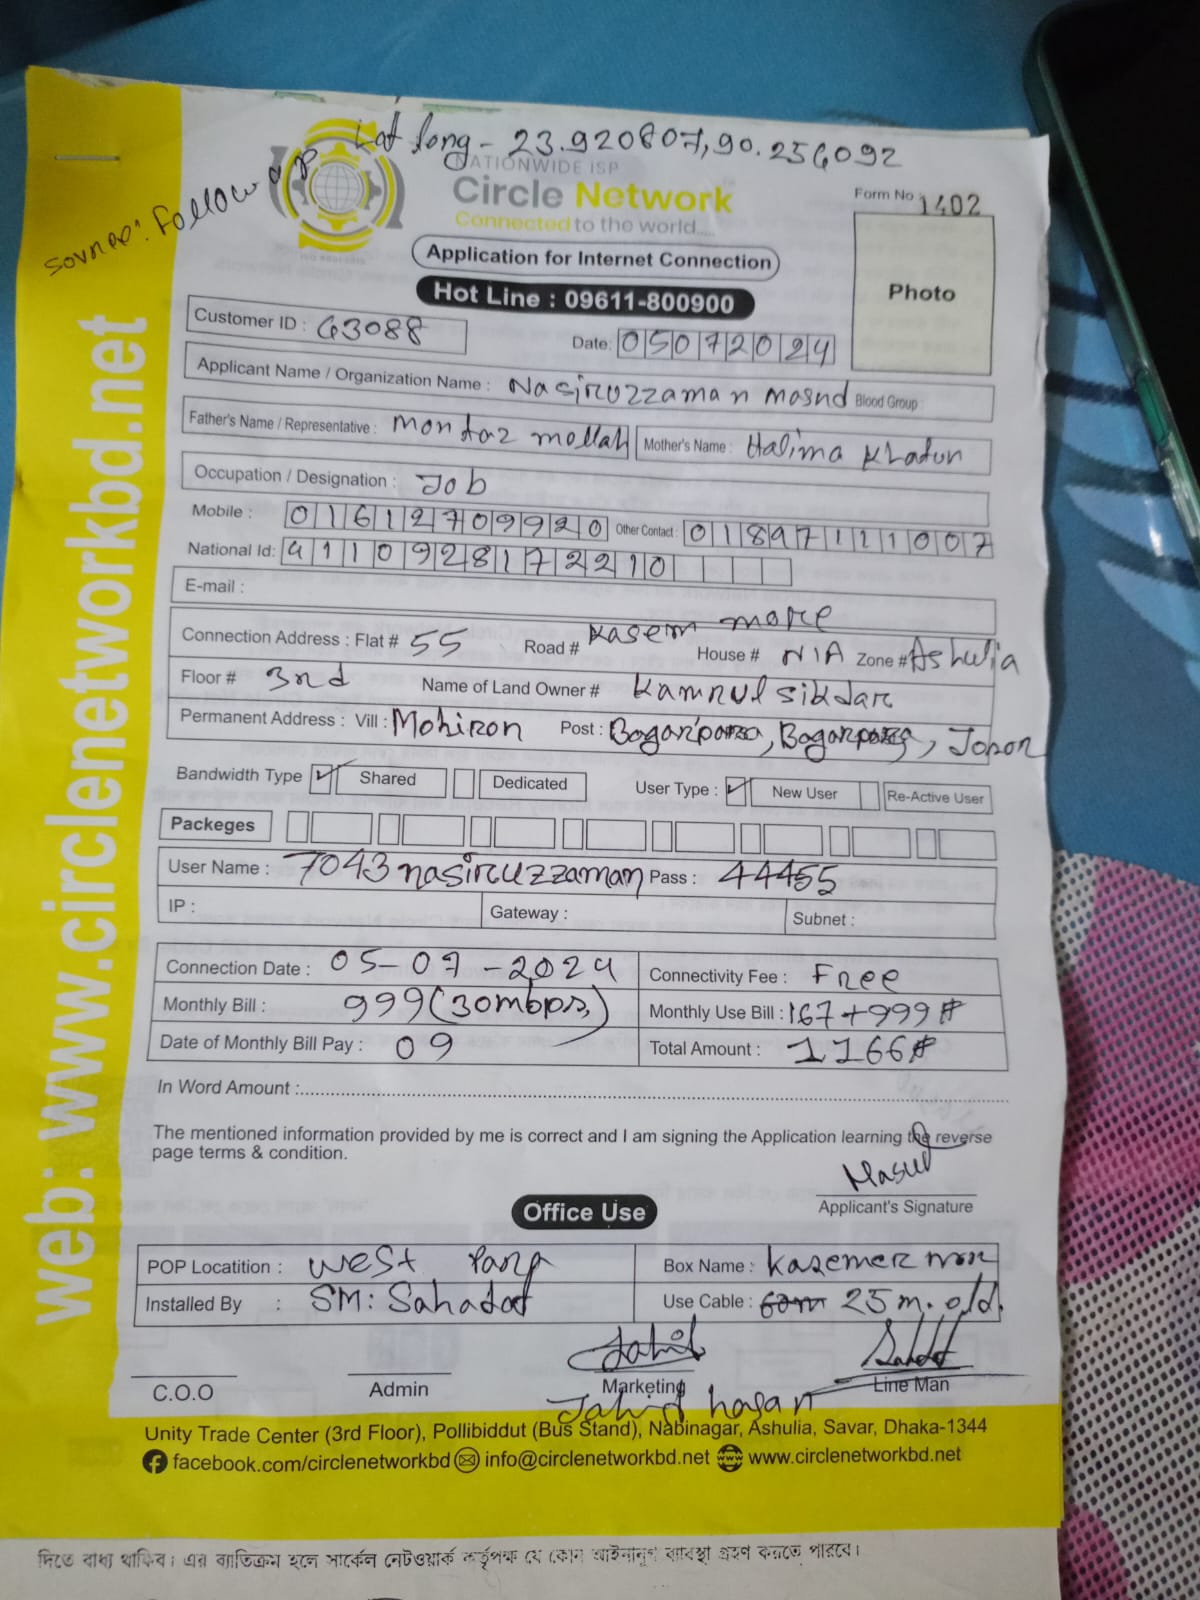 Lat long - 23.920807,90.256092
Source: Follow up
NATIONWIDE ISP
Circle Network
Connected to the world.....
Form No 1402
Application for Internet Connection
Photo
Hot Line : 09611-800900
Customer ID : G3088
Date: 05072024
Applicant Name / Organization Name : Nasiruzzaman Masud Blood Group
Father's Name / Representative : Montaz mollah Mother's Name : Halima Khatun
Occupation / Designation : Job
Mobile : 01612709920 Other Contact : 01897111007
National Id: 4110928172210
E-mail :
Connection Address : Flat # 55 Road # Kasem more House # N/A Zone # Ashulia
Floor # 3rd Name of Land Owner # Kamrul sikdar
Permanent Address : Vill : Mohiron Post : Bagarpara, Bagarpara, Jasor
Bandwidth Type ✓ Shared Dedicated User Type : ✓ New User Re-Active User
Packeges
User Name : 7043nasiruzzaman Pass : 44455
IP : Gateway : Subnet :
Connection Date : 05-07-2024 Connectivity Fee : Free
Monthly Bill : 999(30mbps) Monthly Use Bill : 167+999#
Date of Monthly Bill Pay : 09 Total Amount : 1166#
In Word Amount :
The mentioned information provided by me is correct and I am signing the Application learning the reverse
page terms & condition.
Masud
Applicant's Signature
Office Use
POP Locatition : West Para Box Name : Kasemer mor
Installed By : SM: Sahadat Use Cable : 25 m. old.
Jahid Sahadat
C.O.O Admin Marketing Line Man
Jahid hasan
Unity Trade Center (3rd Floor), Pollibiddut (Bus Stand), Nabinagar, Ashulia, Savar, Dhaka-1344
facebook.com/circlenetworkbd info@circlenetworkbd.net www.circlenetworkbd.net
web: www.circlenetworkbd.net
দিতে বাধ্য থাকিব। এর ব্যতিক্রম হলে সার্কেল নেটওয়ার্ক কর্তৃপক্ষ যে কোন আইনানুগ ব্যাবস্থা গ্রহণ করতে পারবে।